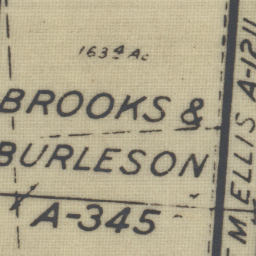 163 4 Ac
BROOKS &
BURLESON
A-345
M ELLIS A-1211